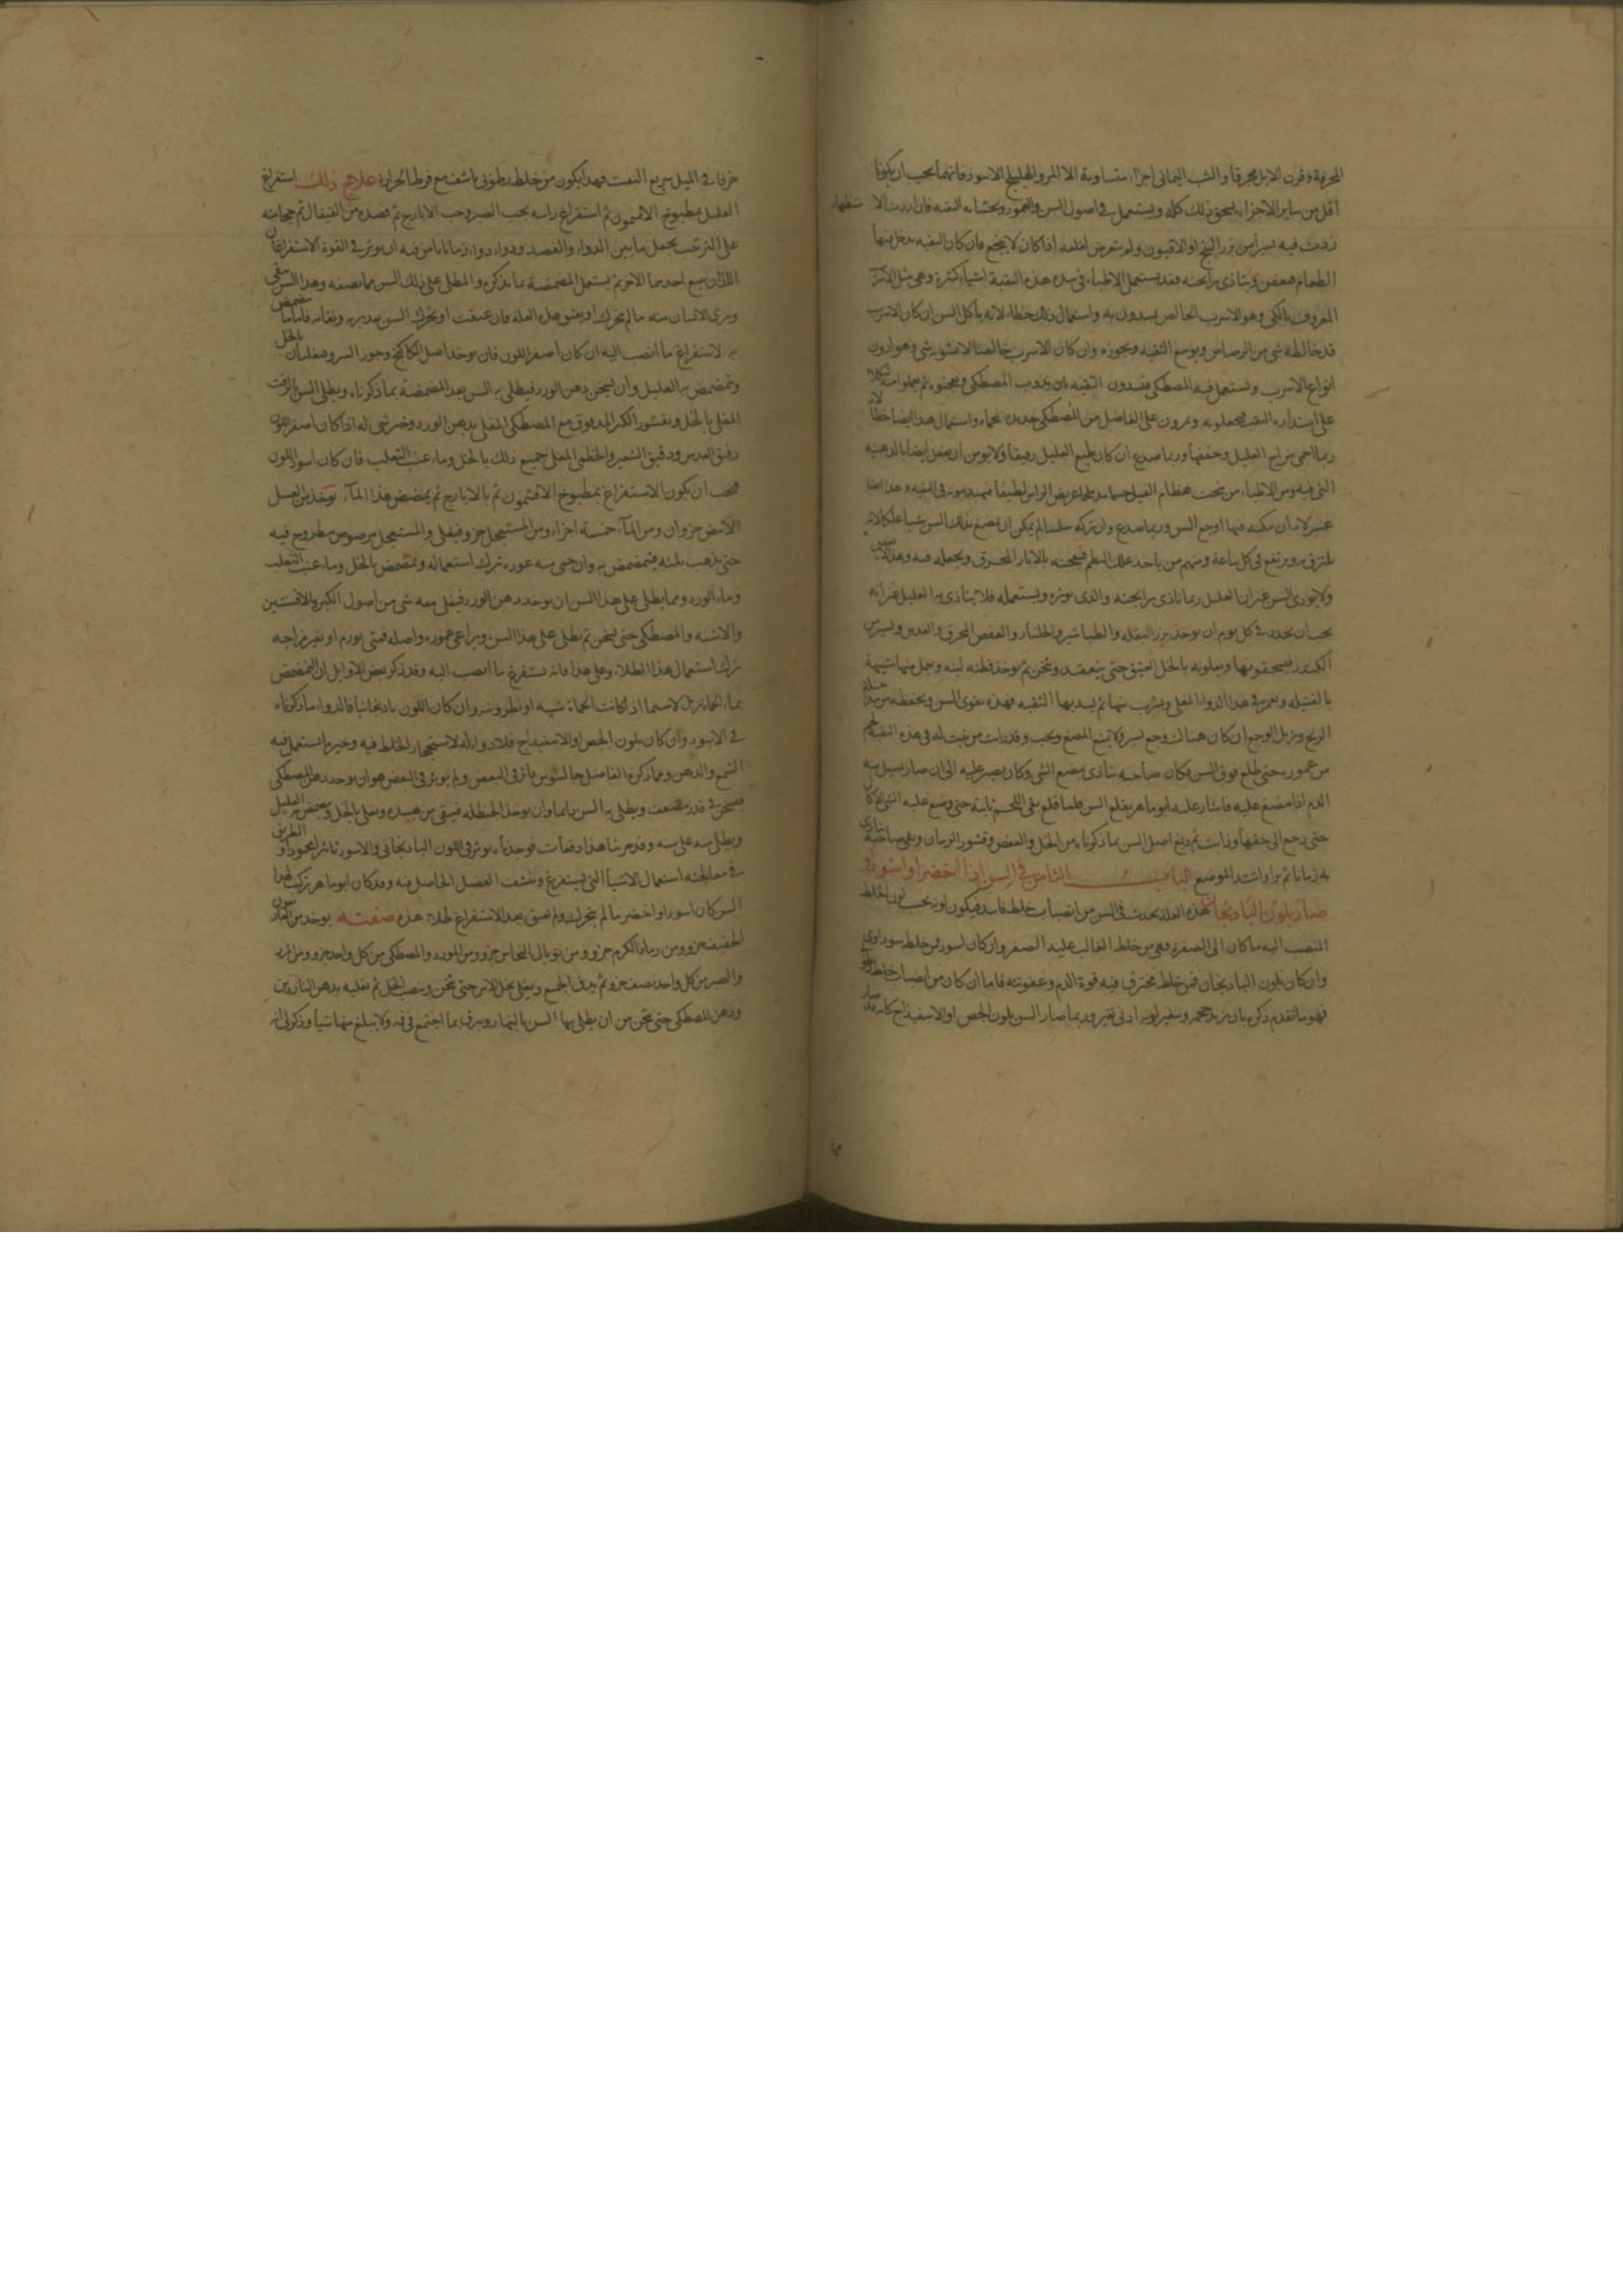 المحرقة وقرن الايل محرقا والشب اليماني اجزاء متساوية الا المر والهليلج الاسود فانهما يجب ان يكونا
اقل من ساير الاجزاء يسحق ذلك كله ويستعمل في اصول السن والعمور ويحشا به الثقبه فان اردت الاستظهار
زدت فيه يسيرا من بزر البنج او الافيون ولم تتعرض لقلعه اذا كان لا ينجع فان كان الثقبه يدخل فيها
الطعام فيعفن ويتاذى برايحته فقد يستعمل الاطباء في سد هذه الثقبة اشياء كثيرة وهي مثل الاسرب
المعروف بالكي وهو الاسرب الخالص يسدون به واستعمال ذلك خطاء لانه ياكل السن ان كان الاسرب
قد خالطه شي من الرصاص ويوسع الثقبه ويجوزه وان كان الاسرب خالصا لا تشوبه شي وهو ادون
انواع الاسرب ويستعمل فيه المصطكى فيسدون الثقبه بان يذوب المصطكى ويعجنوه ثم يعملوا منه شكلا
على استداره الثقب فيجعلونه ويمرون على الفاضل من المصطكى حديدة محماة واستعمال هذا ايضا خطأ لانه
ربما احمى مزاج العليل وجففها وربما صدع ان كان طبع العليل رقيقا ولا يومن ان يعفن ايضا بالدهنيه
التي فيه ومن الاطباء من ينحت عظام الفيل
عسر لانه ان مكنه فيها اوجع السن وربما صدع وان تركه سلسا لم يمكن ان يمضغ بذلك السن شيا علكا لانه
يلتزق به ويرتفع في كل ساعة ومنهم من ياخذ علك البطم فيعجنه بالابار المحرق ويجعله فيه وهذا
ولا يوذي السن غير ان العليل ربما تاذى برايحته والذي نوثره ويستعمله فلا يتاذى به العليل غير انه
يجب ان يجدد في كل يوم ان يوخذ بزر البقله والطباشير والجلنار والعفص المحرق والعدس ويسير من
الكندر فيسحقونها ويغلونه بالخل العتيق حتى ينعقد ويثخن ثم يوخذ قطنه لينه ويعمل منها شبيهة
بالفتيله ويغمر في هذا الدوا المغلى ويشرب منها ثم يسد بها الثقبه فهذه يقوي السن ويحفظه من
الريح ويزيل الوجع ان كان هناك وجع يسير ولا يمنع المضغ ويجب وقد رات من نبت له في هذه الثقبه لحم
من عموره حتى طلع فوق السن فكان صاحبه يتاذى بمضغ الشي وكان يصبر عليه الى ان صار يسيل منه
الدم اذا مضغ عليه فاشار عليه ابو ماهر بقلع السن فلما قلع بقى اللحم نابتة حتى وضع عليه
حتى رجع الى حقها وذابت ثم دبغ اصل السن بما ذكرناه من الخل والعفص وقشور الرمان وبقي صاحبه يتاذى
به زمانا ثم برا واشتد الموضع الباب الثامن في السن اذا اخضر او اسود او
صار بلون الباذنجان هذه العلة يحدث في السن من انصباب خلط فاسد فيكون لونه بحسب لون الخلط
المنصب اليه ما كان الى الصفرة فهي من خلط الغالب عليه الصفر وان كان اسود فمن خلط سوداوي
وان كان بلون الباذنجان فمن خلط محترق فيه قوة الدم وعفونته فاما ان كان من انصباب خلط
فهو ما تقدم ذكره بان يزيد حجمه ويتغير لونه ادنى تغير وربما صار السن بلون الجص او الاسفيذاج كانه قد صار
خزفا في الميل سريع التفتت فهذا يكون من خلط رطوبي ناشف مع فرط الحرارة علاج ذلك استفراغ
العليل بمطبوخ الافتيمون ثم استفراغ راسه بحب الصبر وحب الايارج ثم فصده من القيفال ثم حجامته
على الترتيب يجعل ما بين الدواء والفصد ودواء ودواء زمانا يامن فيه ان يوثر في القوة الاستفراغان
اللذان يتبع احدهما الاخر ثم يستعمل المضمضة بما نذكره والمطلى على ذلك السن مما نصفه وهذا السن
وبرى الانسان منه ما لم يتحرك او يعفو هذه العلة فان عتقت او تحرك السن
به لاستفراغ ما انصب اليه ان كان اصفر اللون فان يوخذ اصل الكاكنج وجوز السرو فيغليان بالخل
ويتمضمض به العليل وان يسخن دهن الورد فيطلى به السن بعد المضمضة بما ذكرناه ويطلى السن بالزفت
المغلى بالخل وبقشور الكبر المدقوق مع المصطكى المغلى بدهن الورد وخير شي له اذا كان اصفر اللون
دقيق العدس ودقيق الشعير والخطمى المغلى جميع ذلك بالخل وماء عنب الثعلب فان كان اسود اللون
فيجب ان يكون الاستفراغ بمطبوخ الافتيمون ثم بالايارج ثم يمضمض هذا الماء يوخذ من العسل
الابيض جزوان ومن الماء خمسة اجزاء ومن المستعجل جزو فيغلى والمستعجل مرضوض مطروح فيه
حتى يذهب ثلثه فيتمضمض به وان حمى منه عوره ترك استعماله وتمضمض بالخل وماء عنب الثعلب
وماء الورد ومما يطلى على هذا السن ان يوخذ دهن الورد فيغلى معه شي من اصول الكبر والافسنتين
والاشنه والمصطكى حتى يثخن ثم يطلى على هذا السن ويراعى عموره واصله فمتى يورم او تغير مزاجه
ترك استعمال هذا الطلاء وعلى هذا فانه يستفرغ ما انصب اليه وقد ذكر بعض الاوايل ان التمضمض
بماء الحمامات يزيل لاسيما اذا كانت الحماة شبيه او نطرونيه وان كان اللون باذنجانيا فالدواء ما ذكرناه
في الاسود وان كان بلون الجص او الاسفيداج فلا دواء له لاستحجار الخلط فيه وخير ما يستعمل فيه
الشمع والدهن ومما ذكره الفاضل جالينوس ياثر في البعض ولم يوثر في البعض هو ان يوخذ دهن المصطكى
فيسخن في قدر مضاعف ويطلى به السن دايما وان يوخذ الحنظله فينقى من هبيده ويغلى بالخل ويتمضمض به العليل
ويطلى منه على سنه وقد جربنا هذا دفعات فوجدناه يوثر في اللون الباذنجاني والاسود تاثيرا محمودا والطريق
في معالجته استعمال الاشيا التي يستفرغ وينشف الفضل الحاصل فيه وقد كان ابو ماهر تركب لهذا
السن كان اسود او اخضر ما لم يتحرك ولم يعتق بعد الاستفراغ طلاء هذه صفته يوخذ من
الخفيفه جزو ومن رماد الكرم جزو ومن توبال النحاس جزو ومن الورد والمصطكى من كل واحد جزو ومن المر
والصبر من كل واحد نصف جزو ثم يدق الجميع ويغلى بخل الاترج حتى يثخن وينصب الخل ثم تغليه بدهن الناردين
ودهن المصطكى حتى يثخن من ان يطلى بها السن بالنهار ويبزق بما اجتمع في فيه ولا يبلع منها شيا وذكر لي انه